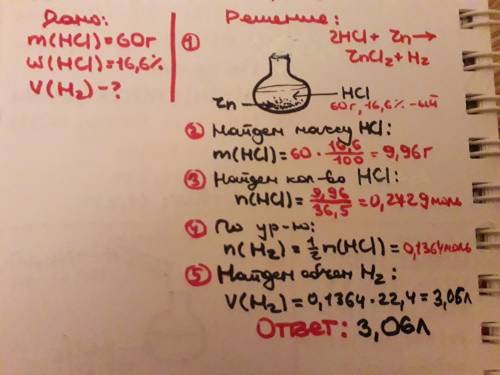 Дано:
m(HCl)=60г
w(HCl)=16,6%
V(H₂)-?
Решение:
① 2HCl + Zn→
ZnCl₂+H₂
Zn
HCl
60г, 16,6%-ый
② Найдем массу HCl:
m(HCl)=60·16,6/100=9,96г
③ Найдем кол-во HCl:
n(HCl)=9,96/36,5=0,2729моль
④ По ур-ю:
n(H₂)=1/2n(HCl)=0,1364моль
⑤ Найдем объем H₂:
V(H₂)=0,1364·22,4=3,06л
Ответ: 3,06л